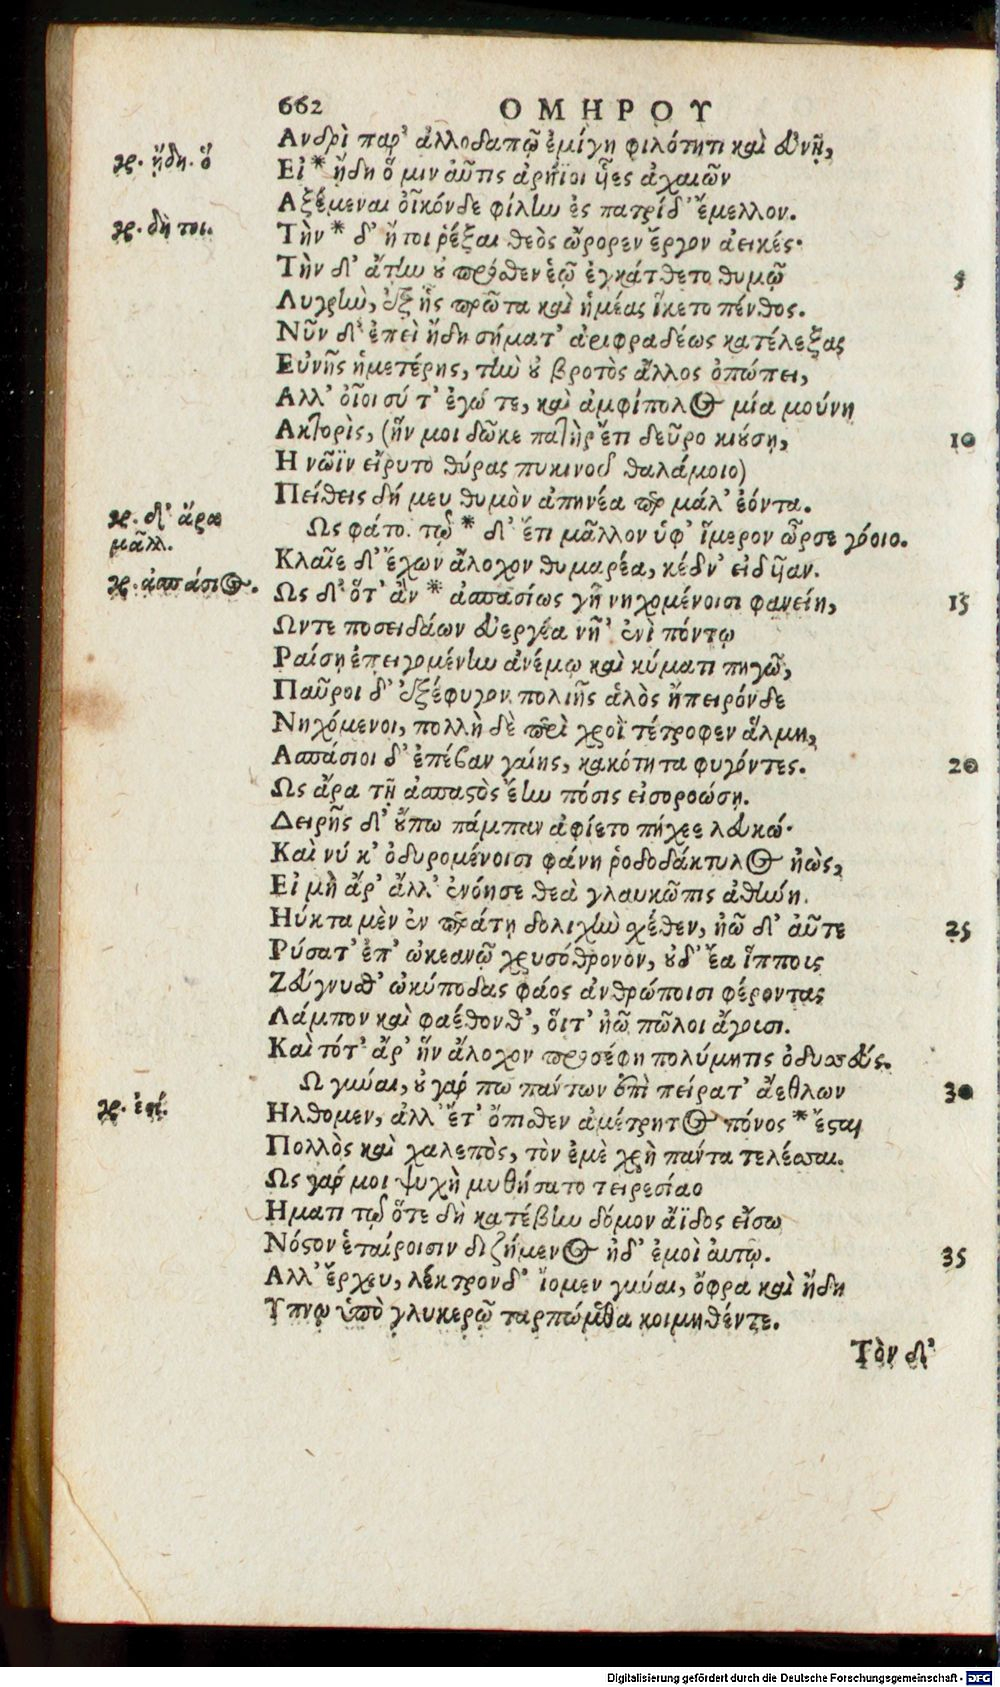 662 ΟΜΗΡΟΥ
Ανδρὶ παρ' ἀλλοδαπῷ ἐμίγη φιλότητι καὶ εὐνῇ,
γρ. ᾔδη. ὅ
Εἰ * ᾔδη ὅ μιν αὖτις ἀρήϊοι υἷες ἀχαιῶν
Αξέμεναι οἶκόνδε φίλην ἐς πατρίδ' ἔμελλον.
γρ. δὴ τοι.
Τὴν * δ' ἤτοι ῥέξαι θεὸς ὤρορεν ἔργον ἀεικές·
Τὴν δ' ἄτην οὐ πρόσθεν ἑῷ ἐγκάτθετο θυμῷ 5
Λυγρὴν, ἐξ ἧς πρῶτα καὶ ἡμέας ἵκετο πένθος.
Νῦν δ' ἐπεὶ ἤδη σήματ' ἀριφραδέως κατέλεξας
Εὐνῆς ἡμετέρης, τὴν οὐ βροτὸς ἄλλος ὀπώπει,
Αλλ' οἶοι σύ τ' ἐγώ τε, καὶ ἀμφίπολος μία μούνη
Ακτορὶς, (ἥν μοι δῶκε πατὴρ ἔτι δεῦρο κιούσῃ, 10
Η νῶϊν εἴρυτο θύρας πυκινοῦ θαλάμοιο)
Πείθεις δή μευ θυμὸν ἀπηνέα περ μάλ' ἐόντα.
γρ. δ' ἄρα
μᾶλλ.
Ως φάτο. τῷ * δ' ἔτι μᾶλλον ὑφ' ἵμερον ὦρσε γόοιο.
Κλαῖε δ' ἔχων ἄλοχον θυμαρέα, κέδν' εἰδυῖαν.
γρ. ἀσπάσιος.
Ως δ' ὅτ' ἂν * ἀσπασίως γῆ νηχομένοισι φανείη, 15
Ωντε ποσειδάων εὐεργέα νῆ' ἐνὶ πόντῳ
Ραίσῃ ἐπειγομένην ἀνέμῳ καὶ κύματι πηγῷ,
Παῦροι δ' ἐξέφυγον πολιῆς ἁλὸς ἤπειρόνδε
Νηχόμενοι, πολλὴ δὲ περὶ χροῒ τέτροφεν ἅλμη,
Ασπάσιοι δ' ἐπέβαν γαίης, κακότητα φυγόντες. 20
Ως ἄρα τῇ ἀσπαστὸς ἔην πόσις εἰσοροώσῃ.
Δειρῆς δ' οὔπω πάμπαν ἀφίετο πήχεε λευκώ·
Καὶ νύ κ' ὀδυρομένοισι φάνη ῥοδοδάκτυλος ἠὼς,
Εἰ μὴ ἄρ' ἄλλ' ἐνόησε θεὰ γλαυκῶπις ἀθήνη.
Ηύκτα μὲν ἐν περάτῃ δολιχὴν σχέθεν, ἠῶ δ' αὖτε 25
Ρύσατ' ἐπ' ὠκεανῷ χρυσόθρονον, οὐδ' ἔα ἵππους
Ζεύγνυσθ' ὠκύποδας φάος ἀνθρώποισι φέροντας
Λάμπον καὶ φαέθονθ', οἵτ' ἠῶ πῶλοι ἄγουσι.
Καὶ τότ' ἄρ' ἣν ἄλοχον προσέφη πολύμητις ὀδυσσεύς.
Ω γύναι, οὐ γάρ πω πάντων ἐπὶ πείρατ' ἀέθλων 30
γρ. ἐσί.
Ηλθομεν, ἀλλ' ἔτ' ὄπιθεν ἀμέτρητος πόνος * ἔσται
Πολλὸς καὶ χαλεπὸς, τὸν ἐμὲ χρὴ πάντα τελέσσαι.
Ως γάρ μοι ψυχὴ μυθήσατο τειρεσίαο
Ηματι τῷ ὅτε δὴ κατέβην δόμον ἄϊδος εἴσω
Νόστον ἑταίροισιν διζήμενος ἠδ' ἐμοὶ αὐτῷ. 35
Αλλ' ἔρχευ, λέκτρονδ' ἴομεν γύναι, ὄφρα καὶ ἤδη
Υπνῳ ὑπὸ γλυκερῷ ταρπώμεθα κοιμηθέντε.
Τὸν δ'
Digitalisierung gefördert durch die Deutsche Forschungsgemeinschaft - DFG